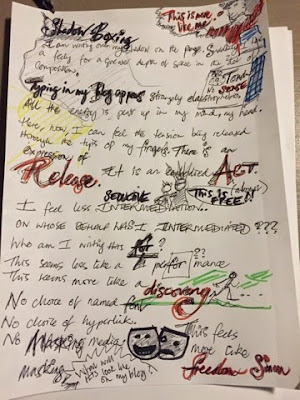 This is more like me!
Shadow Boxing
I am writing over my shadow on the page. Symbolising
a feeling for a greater depth of space in the act of
Composition.
SENSE
Typing in my Blog appears strangely claustrophobic
All the energy is pent up in my mind, my hand.
Here, now I can feel the tension being released
through the tips of my fingers. There is an
expression of
Release.
It is an embodied ACT.
SEDUCTIVE
This is (always) FREE!!
I feel less INTERMEDIATION...
ON WHOSE BEHALF HAS I INTERMEDIATED???
Who am I writing this for?
This seems less like a performance??
This seems more like a discovery
No choice of named font
No choice of hyperlink.
No Masking media
Masking
What will this look like on my blog?!
This feels
more like
freedom Simon